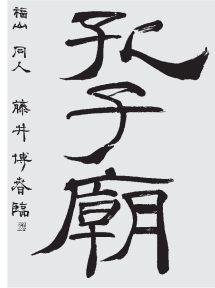 孔子廟
福山 同人 藤井博春臨